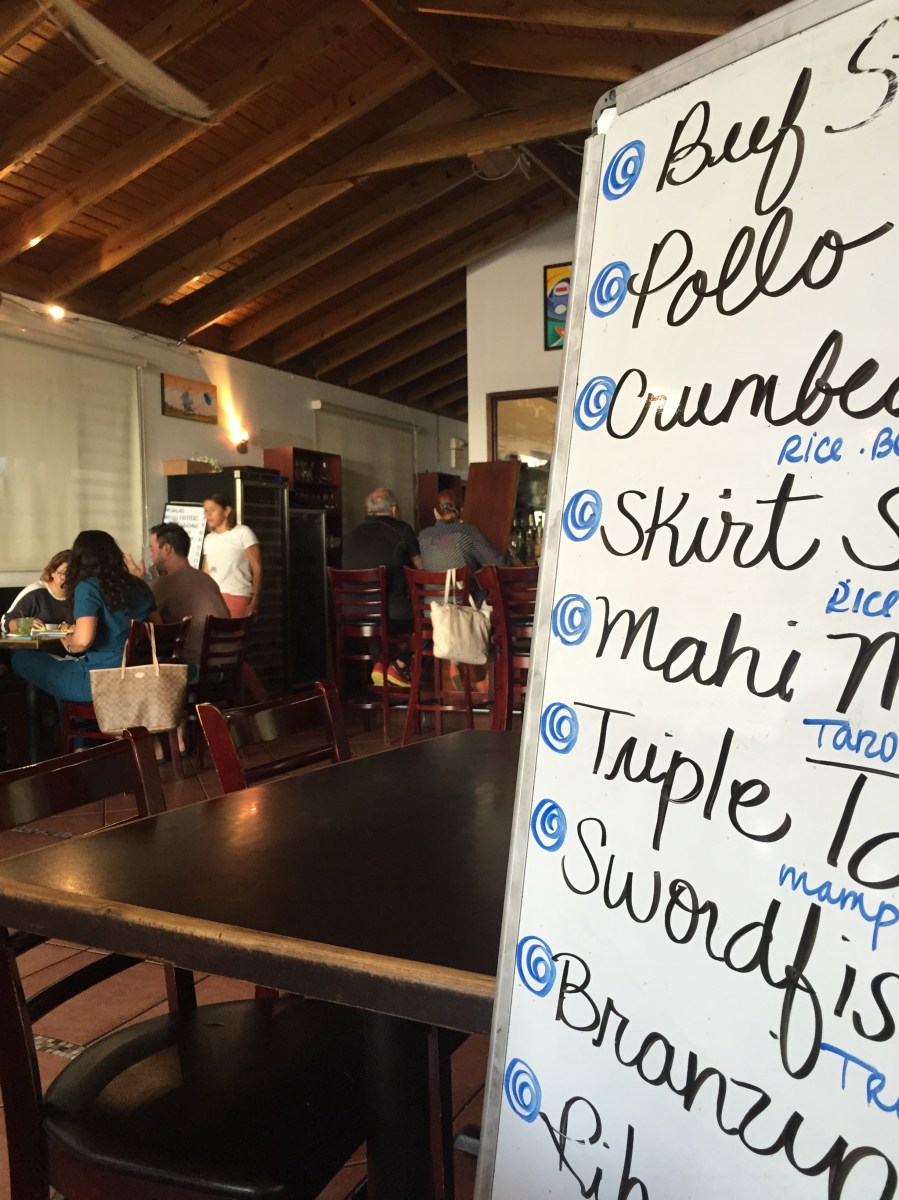 Beef S
Pollo
Crumbed
Rice . Be
Skirt S
Rice
Mahi M
Taro
Triple Ta
mamp
Swordfis
Tr
Branzin
Rib